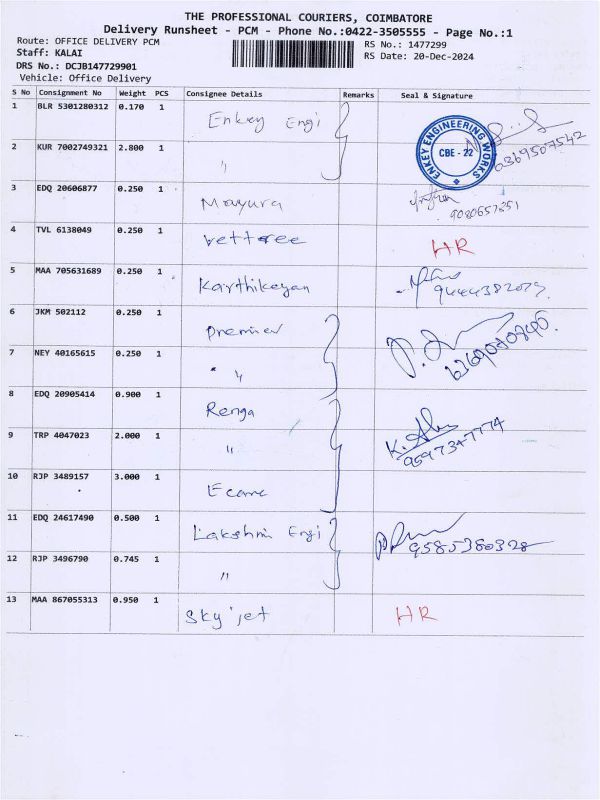 THE PROFESSIONAL COURIERS, COIMBATORE
Delivery Runsheet - PCM - Phone No.:0422-3505555 - Page No.:1
Route: OFFICE DELIVERY PCM RS No.: 1477299
Staff: KALAI RS Date: 20-Dec-2024
DRS No.: DCJB147729901
Vehicle: Office Delivery
S No Consignment No Weight PCS Consignee Details Remarks Seal & Signature
1 BLR 5301280312 0.170 1 Enkey Engi
ENKEY ENGINEERING WORKS
CBE - 22
2 KUR 7002749321 2.800 1 "
3 EDQ 20606877 0.250 1 Mayura
4 TVL 6138049 0.250 1 vettree HR
5 MAA 705631689 0.250 1 Karthikeyan
6 JKM 502112 0.250 1 premier
7 NEY 40165615 0.250 1 "
8 EDQ 20905414 0.900 1 Renga
9 TRP 4047023 2.000 1 " 9597347774
10 RJP 3489157 3.000 1
11 EDQ 24617490 0.500 1 Lakshmi Engi 9585380328
12 RJP 3496790 0.745 1 "
13 MAA 867055313 0.950 1 Sky jet HR